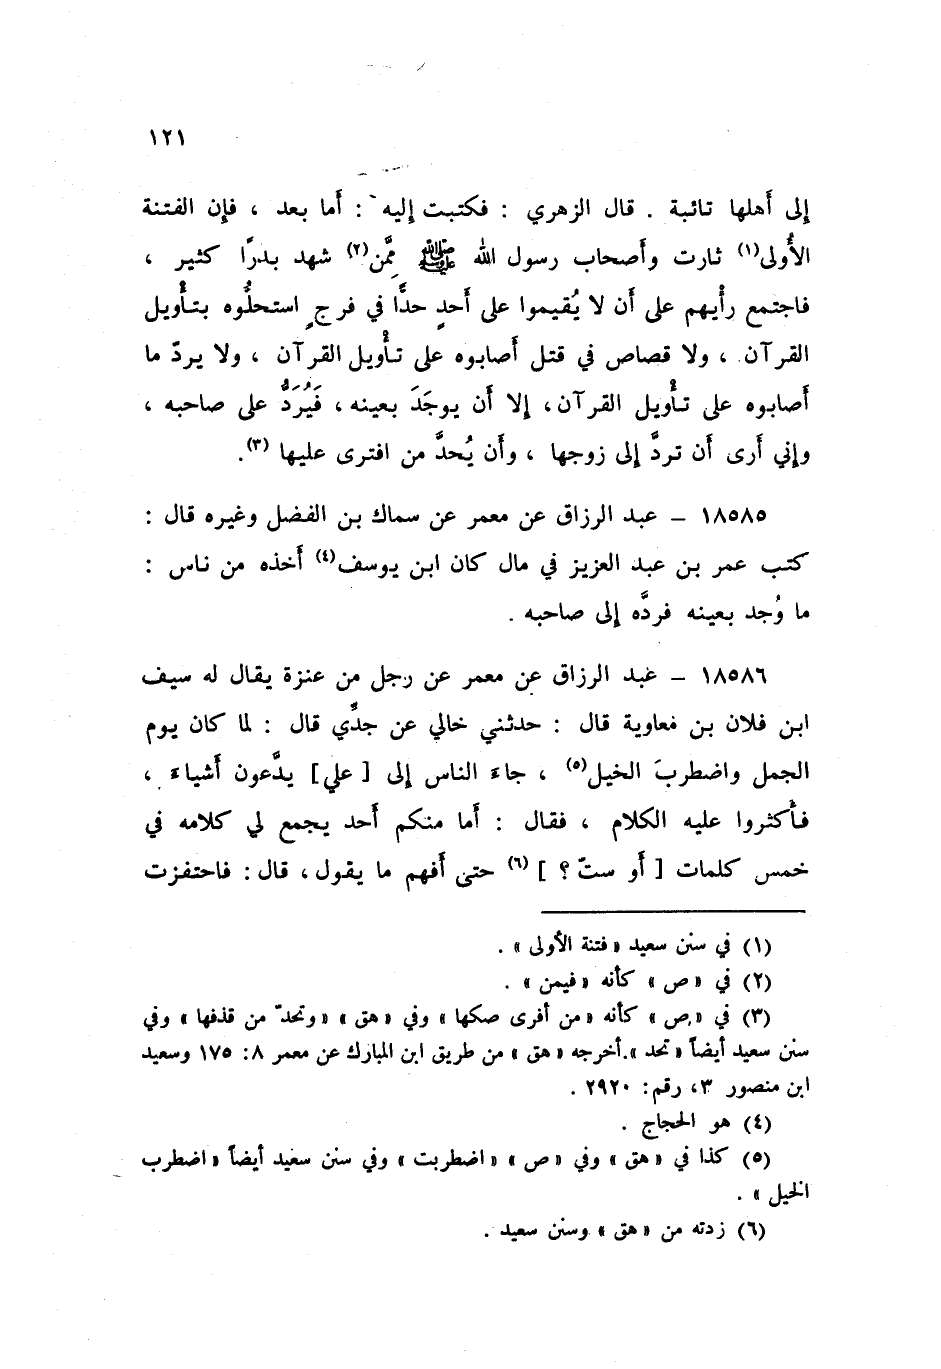 ١٢١
إلى أهلها تائبة . قال الزهري : فكتبت إليه : أما بعد ، فإن الفتنة
الأُولى(١) ثارت وأصحاب رسول الله ﷺ مِمَّن(٢) شهد بدرًا كثير ،
فاجتمع رأْيهم على أن لا يُقيموا على أحدٍ حدًّا في فرجٍ استحلُّوه بتأْويل
القرآن ، ولا قصاص في قتل أصابوه على تأْويل القرآن ، ولا يردّ ما
أصابوه على تأْويل القرآن، إلا أن يوجَدَ بعينه، فَيُرَدُّ على صاحبه ،
وإني أرى أن تردَّ إلى زوجها ، وأن يُحدَّ من افترى عليها (٣).
١٨٥٨٥ – عبد الرزاق عن معمر عن سماك بن الفضل وغيره قال :
كتب عمر بن عبد العزيز في مال كان ابن يوسف(٤) أخذه من ناس :
ما وُجد بعينه فردَّه إلى صاحبه .
١٨٥٨٦ – عبد الرزاق عن معمر عن رجل من عنزة يقال له سيف
ابن فلان بن معاوية قال : حدثني خالي عن جدِّي قال : لما كان يوم
الجمل واضطربَ الخيل(٥) ، جاءَ الناس إلى [ علي ] يدَّعون أشياءَ ،
فأكثروا عليه الكلام ، فقال : أما منكم أحد يجمع لي كلامه في
خمس كلمات [ أو ستّ ؟ ] (٦) حتى أفهم ما يقول ، قال : فاحتفزت
(١) في سنن سعيد «فتنة الأولى» .
(٢) في «ص» كأنه «فيمن» .
(٣) في «ص» كأنه «من أفرى صكها» وفي «هق» «وتحدّ من قذفها» وفي
سنن سعيد أيضاً «تحد».أخرجه «هق» من طريق ابن المبارك عن معمر ٨: ١٧٥ وسعيد
ابن منصور ٣، رقم: ٢٩٢٠ .
(٤) هو الحجاج .
(٥) كذا في «هق» وفي «ص» «اضطربت» وفي سنن سعيد أيضاً «اضطرب
الخيل» .
(٦) زدته من «هق» وسنن سعيد .